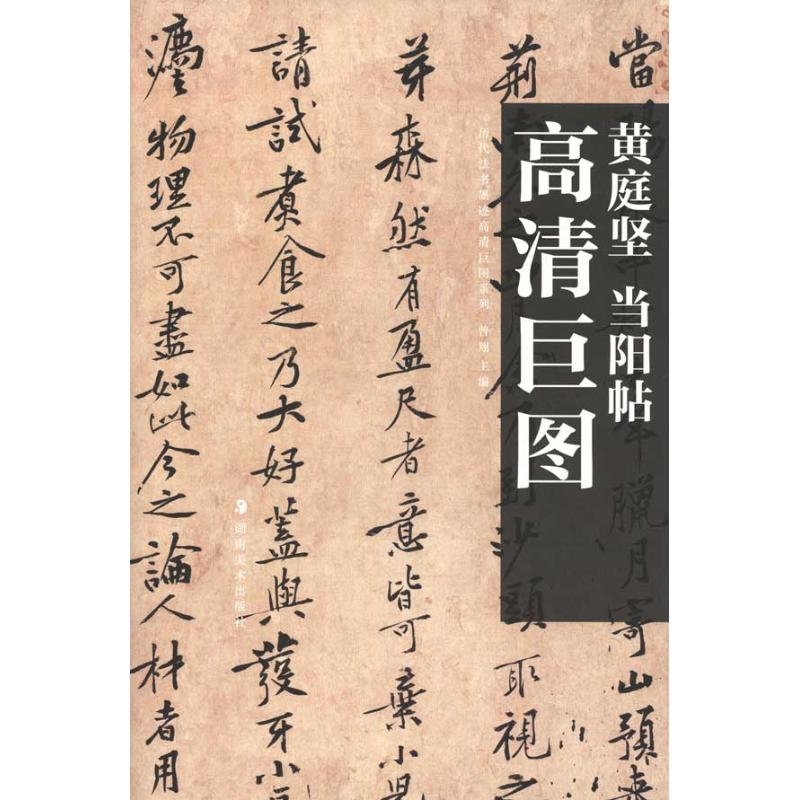 黄庭坚 当阳帖
高清巨图
历代法书墨迹高清巨图系列 曾翔 主编
當陽 年臘月寄山預来
荊 到沙頭取視之
芽森然有盈尺者意皆可棄小兒
請試煮食之乃大好蓋與發牙小
灋物理不可盡如此今之論人材者用
湖南美术出版社